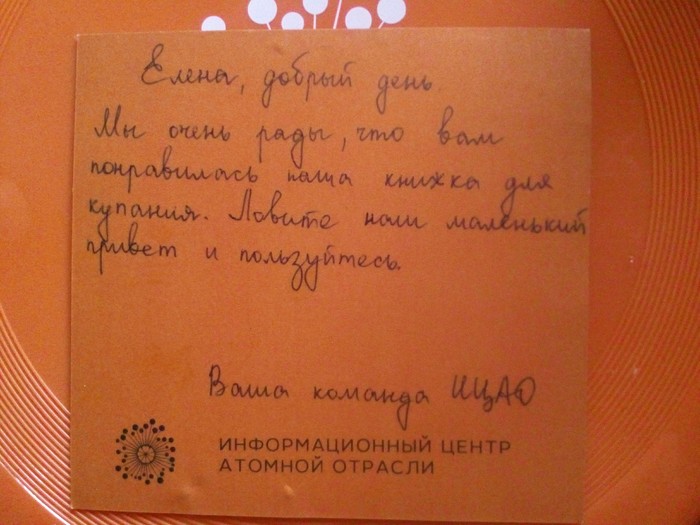 Елена, добрый день.
Мы очень рады, что вам
понравилась наша книжка для
купания. Ловите наш маленький
привет и пользуйтесь.
Ваша команда ИЦАО
ИНФОРМАЦИОННЫЙ ЦЕНТР
АТОМНОЙ ОТРАСЛИ